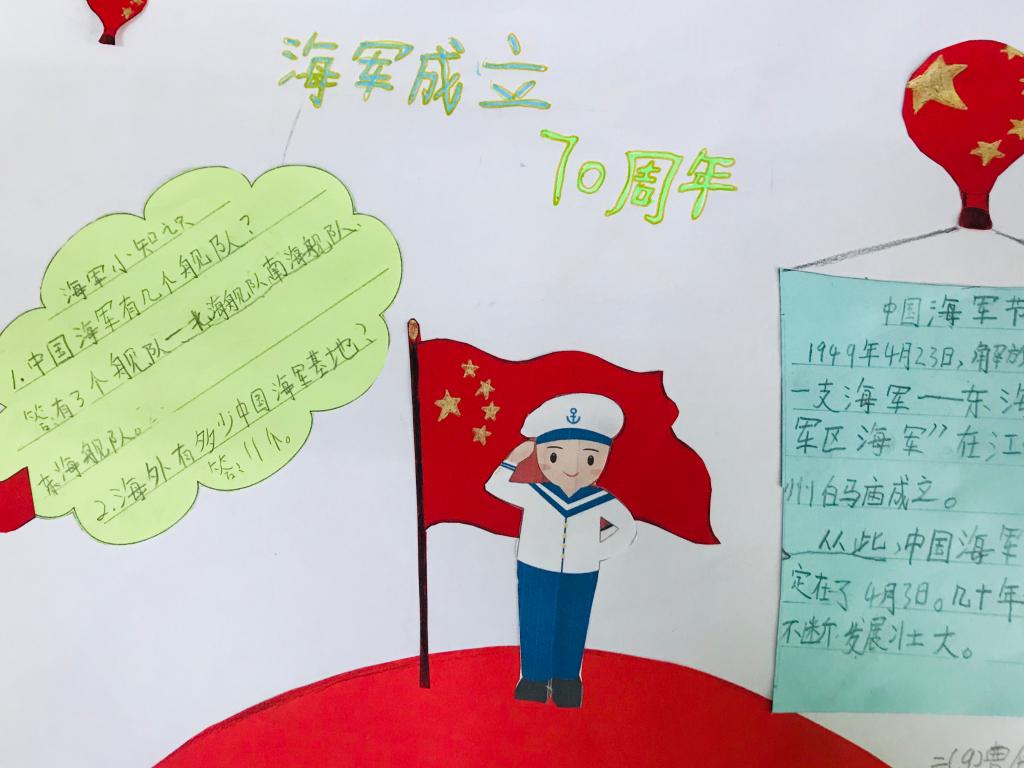 海军成立
70周年
海军小知识
1.中国海军有几个舰队?
答:有3个舰队——北海舰队南海舰队
东海舰队。
2.海外有多少中国海军基地?
答:11个。
中国海军节
1949年4月23日,解放
一支海军——东海
军区海军”在江
州白马庙成立。
从此,中国海军
定在了4月3日。几十年
不断发展壮大。
二(9)曹